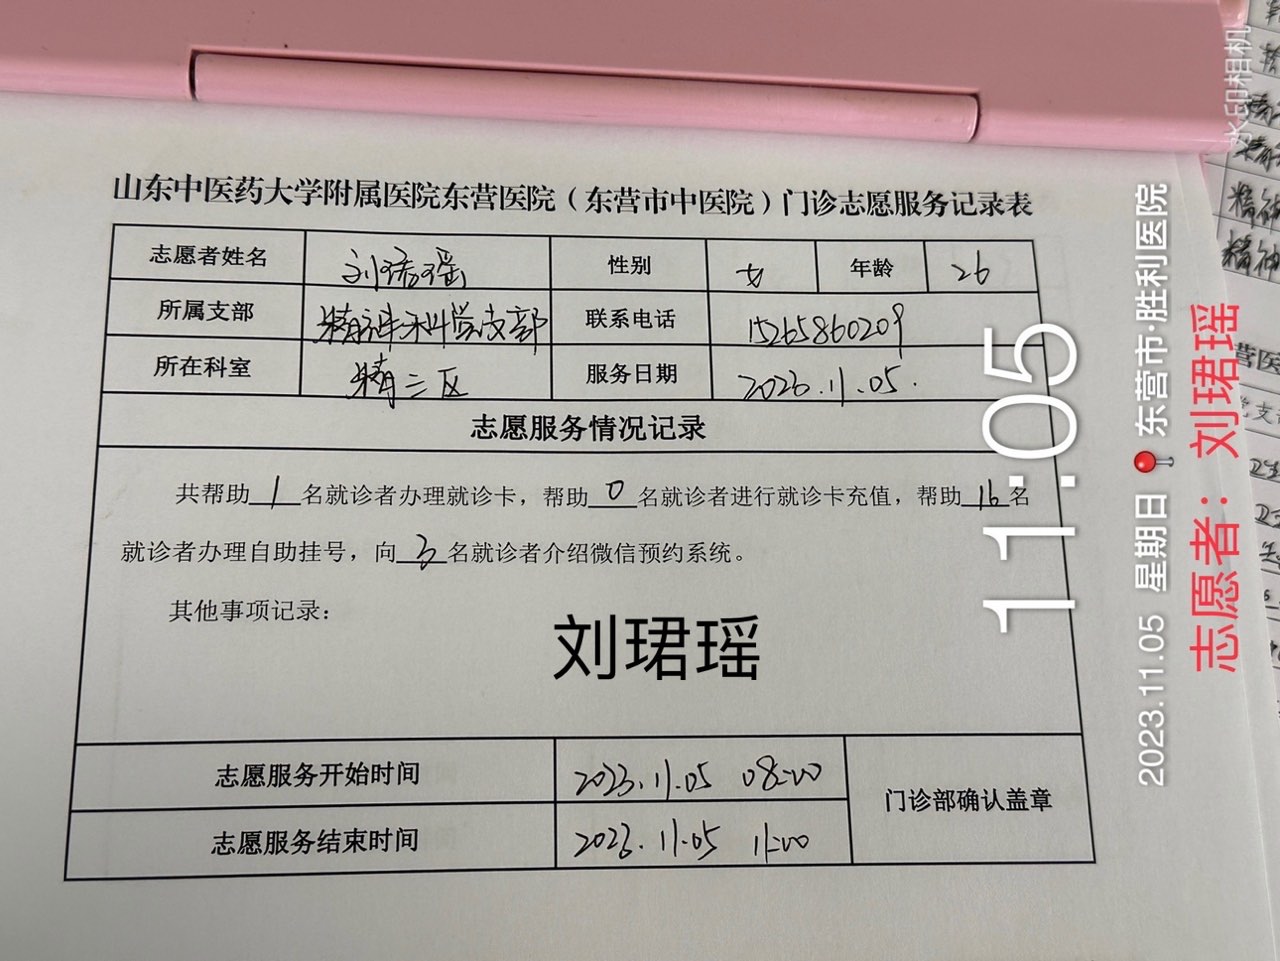 山东中医药大学附属医院东营医院（东营市中医院）门诊志愿服务记录表
志愿者姓名 刘珺瑶 性别 女 年龄 26
所属支部 精神科学支部 联系电话 15265860209
所在科室 精三区 服务日期 2023.11.05.
志愿服务情况记录
共帮助1名就诊者办理就诊卡，帮助0名就诊者进行就诊卡充值，帮助16名
就诊者办理自助挂号，向3名就诊者介绍微信预约系统。
其他事项记录：
刘珺瑶
志愿服务开始时间 2023.11.05 08:00
门诊部确认盖章
志愿服务结束时间 2023.11.05 11:00
11:05
2023.11.05 星期日 东营市·胜利医院
志愿者：刘珺瑶
水印相机